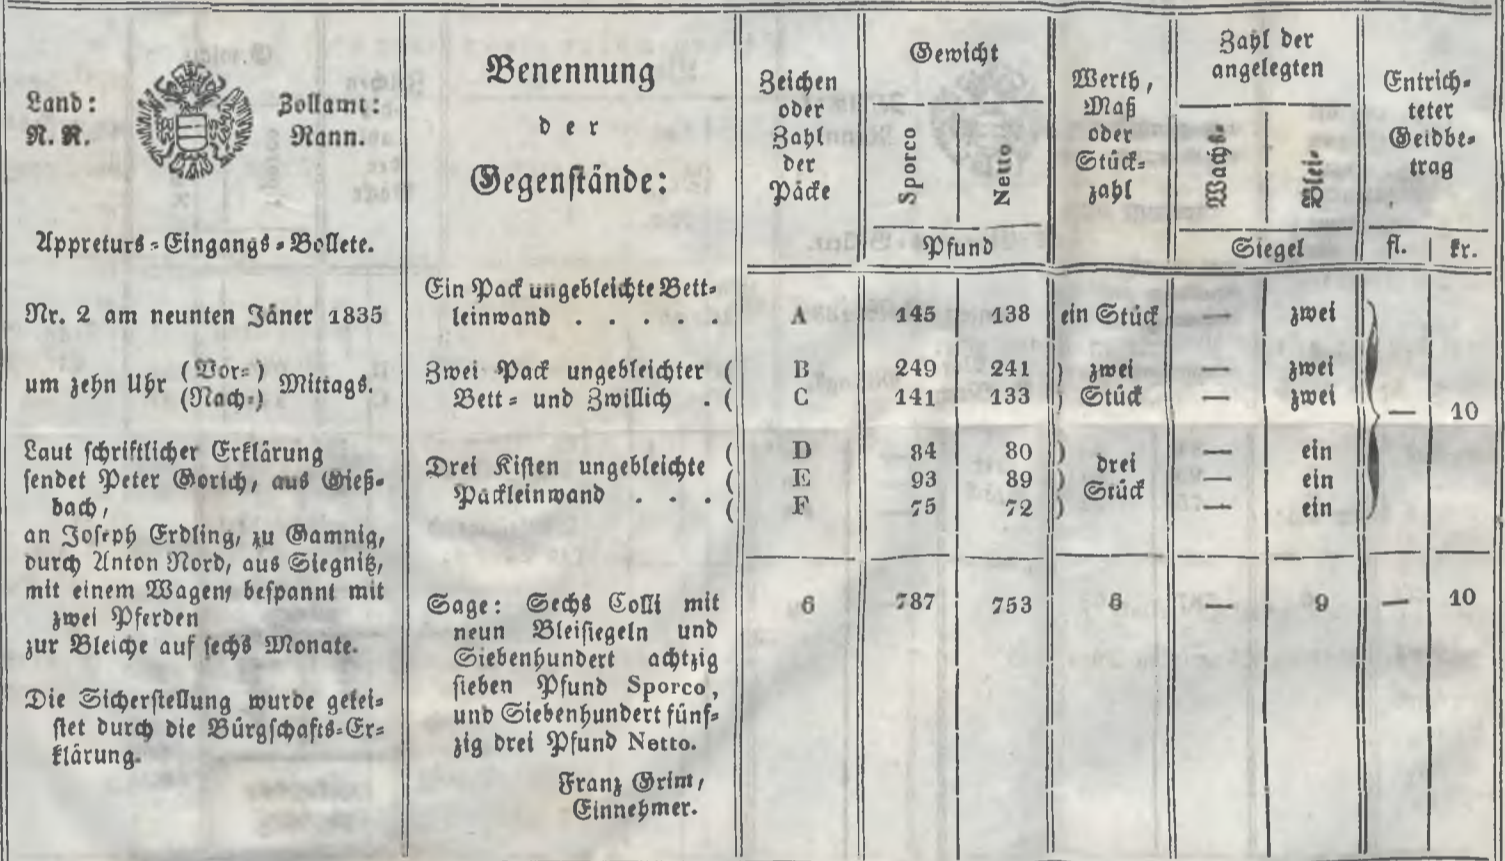 Land: Zollamt:
N. N. Rann.
Appreturs-Eingangs-Bollete.
Nr. 2 am neunten Jäner 1835
um zehn Uhr (Vor-) Mittags.
(Nach-)
Laut schriftlicher Erklärung
sendet Peter Gorich, aus Gieß-
bach,
an Joseph Erdling, zu Gamnig,
durch Anton Nord, aus Siegnitz,
mit einem Wagen, bespannt mit
zwei Pferden
zur Bleiche auf sechs Monate.
Die Sicherstellung wurde gelei-
stet durch die Bürgschafts-Er-
klärung.
Benennung
der
Gegenstände:
Zeichen
oder
Zahl
der
Päcke
Gewicht
Sporco
Netto
Pfund
Werth,
Maß
oder
Stück-
zahl
Zahl der
angelegten
Wachs-
Blei-
Siegel
Entrich-
teter
Geldbe-
trag
fl. kr.
Ein Pack ungebleichte Bett-
leinwand . . . . . A 145 138 ein Stück — zwei
Zwei Pack ungebleichter ( B 249 241 ) zwei — zwei
Bett- und Zwillich . ( C 141 133 ) Stück — zwei
— 10
( D 84 80 ) — ein
Drei Kisten ungebleichte ( E 93 89 ) drei — ein
Packleinwand . . . ( F 75 72 ) Stück — ein
Sage: Sechs Colli mit 6 787 753 6 — 9 — 10
neun Bleisiegeln und
Siebenhundert achtzig
sieben Pfund Sporco,
und Siebenhundert fünf-
zig drei Pfund Netto.
Franz Grim,
Einnehmer.